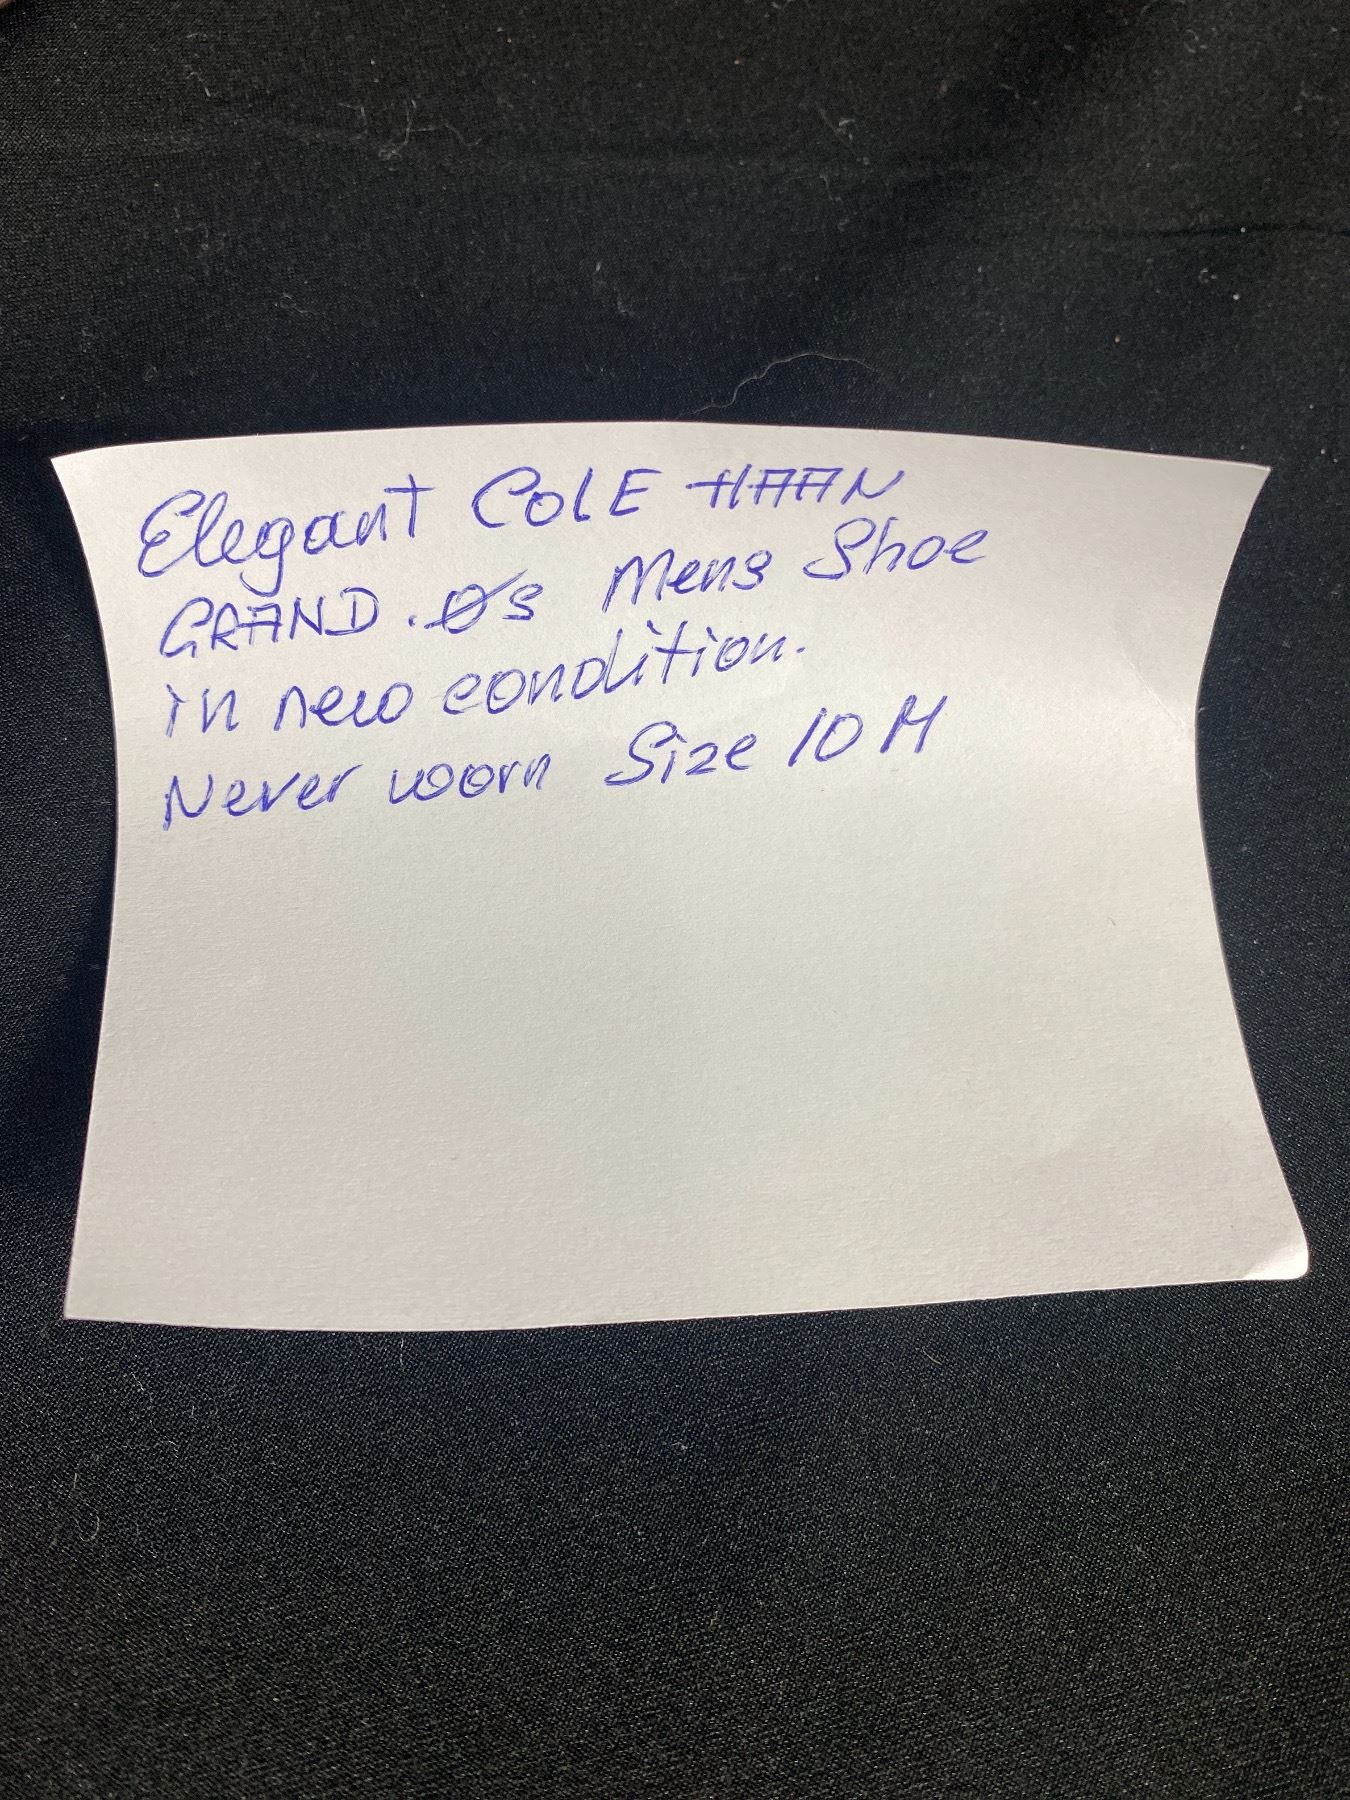 Elegant ColE HAAN
GRAND.Øs Mens Shoe
in new condition.
Never worn Size 10 M